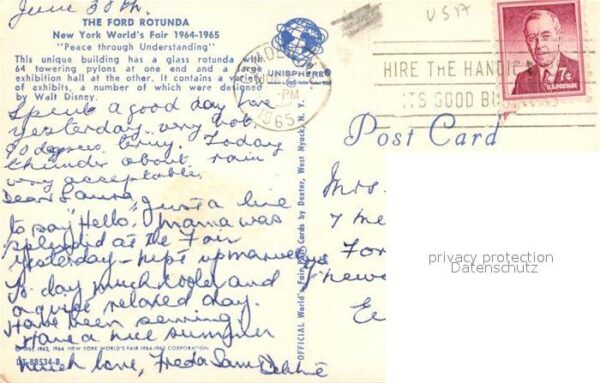 June 30th.
THE FORD ROTUNDA
New York World's Fair 1964-1965
"Peace through Understanding"
This unique building has a glass rotunda with
64 towering pylons at one end and a large
exhibition hall at the other. It contains a variety
of exhibits, a number of which were designed
by Walt Disney.
Spent a good day here
yesterday. very hot
90 degrees. Today
thunder about rain
very acceptable.
Dear Laura, Just a line
to say "Hello". Mama was
splendid at the Fair
yesterday - kept up
To day much cooler and
a quiet relaxed day.
Have been sewing.
Have a nice summer
much love, Freda Sam Debbie
© 1961, 1962, 1964 NEW YORK WORLD'S FAIR 1964-1965 CORPORATION
DT-88534-B
UNISPHERE
PM
1965
OFFICIAL World's Fair Post Cards by Dexter, West Nyack, N. Y.
USA
HIRE THE
ITS GOOD
7¢
U.S. POSTAGE
Post Card
Mrs.
7
For
privacy protection
Datenschutz